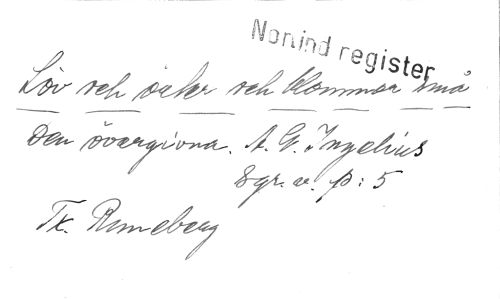 Nomind register
Löv och örter och blommor små
Den övergivna. A. G. Ingelius
8gr. a. p: 5
Tx. Runeberg